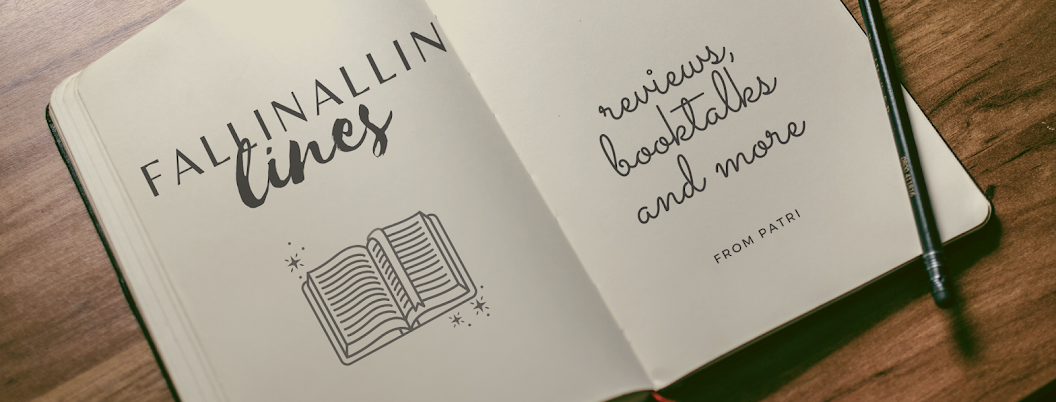 FALLINALLIN
lines
reviews,
booktalks
and more
FROM PATRI